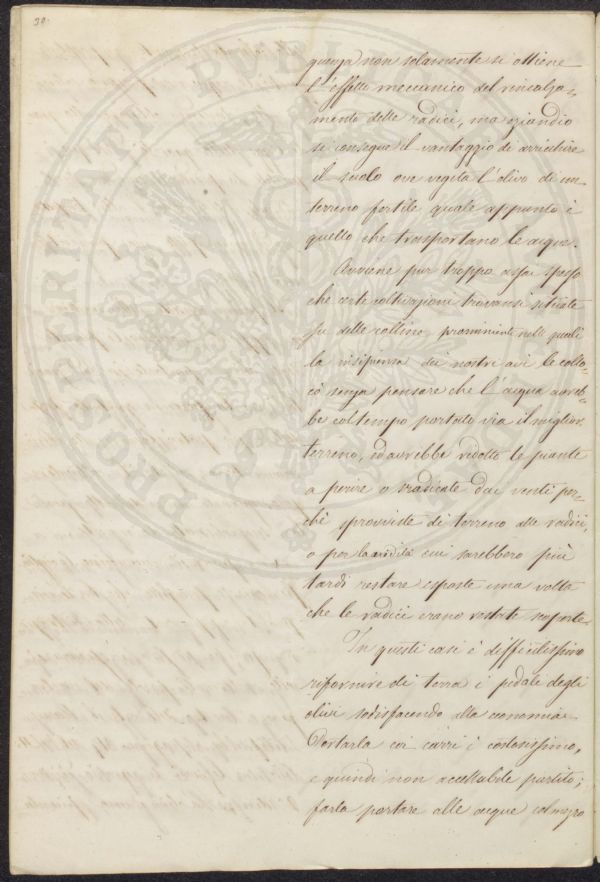 30.
guenza non solamente si ottiene
l'effetto meccanico del rincalza-
mento delle radici, ma eziandio
si consegue il vantaggio di arricchire
il suolo ove vegeta l'olivo di un
terreno fertile quale appunto è
quello che trasportano le acque.
Avviene pur troppo assai spesso
che certe coltivazioni trovansi situate
su delle colline, prominenti nelle quali
la insipienza dei nostri avi le collo-
cò senza pensare che l'acqua avreb-
be col tempo portato via il miglior
terreno, ed avrebbe ridotto le piante
a perire o sradicate dai venti per-
chè sprovviste di terreno alle radici,
o per la aridità cui sarebbero più
tardi restare esposte una volta
che le radici erano restate scoperte.
In questi casi è difficilissimo
rifornire di terra i pedali degli
olivi sodisfacendo alla economia.
Portarla coi carri è costosissimo,
e quindi non accettabile partito;
farla portare alle acque col mezzo
PROSPERITATI PUBLICAE